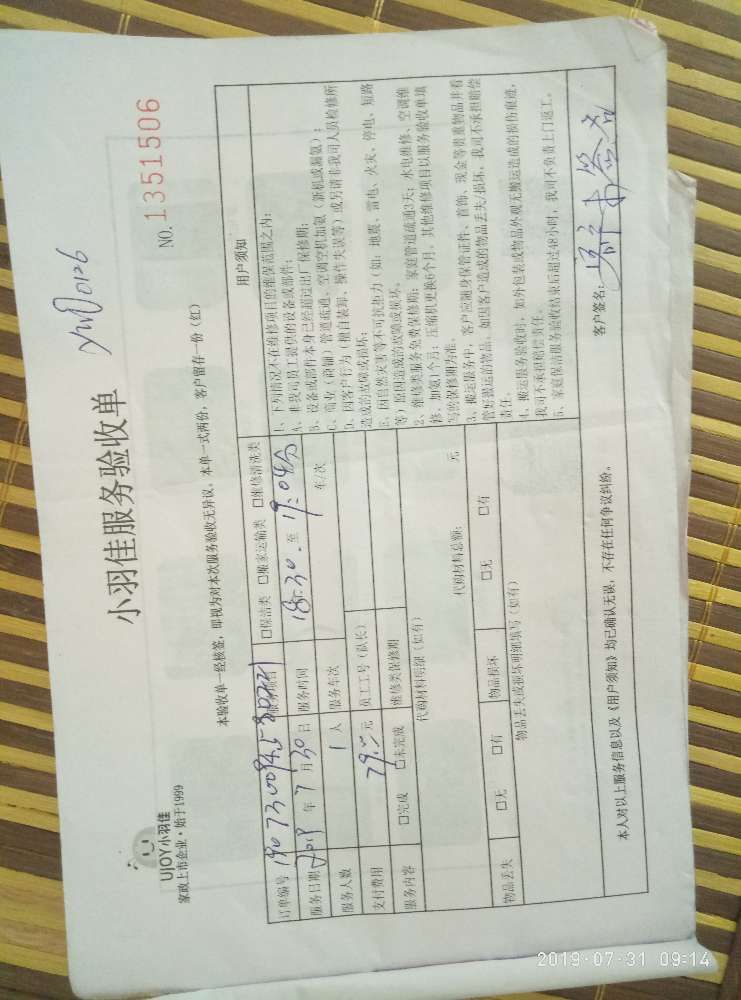 UJOY小羽佳
家政上市企业·始于1999
小羽佳服务验收单
NO. 1351506
本验收单一经核签，即视为对本次服务验收无异议。本单一式两份，客户留存一份（红）
订单编号
□保洁类 □搬家运输类 □维修清洗类
服务日期 2019 年 7 月 30 日 服务时间 18:30 至 19:04分
服务人数 1 人 服务车次 车/次
支付费用 元 员工工号（队长）
服务内容 □完成 □未完成 维修类保修期
代购材料明细（如有）
代购材料总额： 元
物品丢失 □无 □有 物品损坏 □无 □有
物品丢失或损坏明细填写（如有）
用户须知
1、下列情况不在维修项目的维保范围之内：
A、非我司员工提供的设备或部件；
B、设备或部件本身已经超过出厂保修期；
C、商业（商铺）管道疏通，空调空机加氨（新机或漏氨）；
D、因客户行为（擅自装卸、操作失误等）或另请非我司人员检修所
造成的故障或损坏；
E、因自然灾害等不可抗拒力（如：地震、雷电、火灾、停电、短路
等）原因造成的故障或损坏。
2、维修类服务免费保修期：家庭管道疏通7天；水电维修、空调维
修、加氨1个月；压缩机更换6个月，其他维修项目以服务验收单填
写的保修期为准。
3、搬运服务中，客户应随身保管证件、首饰、现金等贵重物品并看
管好搬运的物品，如因客户造成的物品丢失/损坏，我司不承担赔偿
责任。
4、搬运服务验收时，如外包装或物品外观无搬运造成的损伤痕迹，
我司不承担赔偿责任。
5、家庭保洁服务验收结束后超过48小时，我司不负责上门返工。
本人对以上服务信息以及《用户须知》均已确认无误，不存在任何争议纠纷。 客户签名：
2019-07-31 09:14